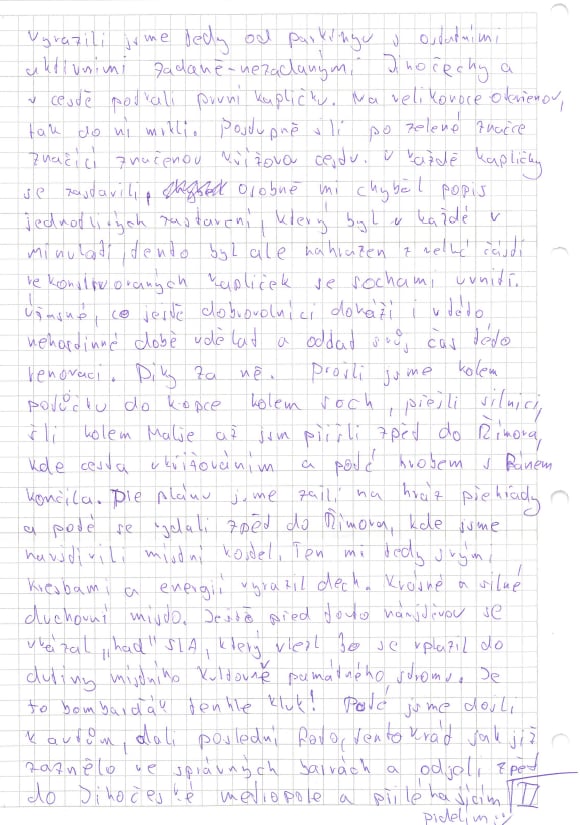 Vyrazili jsme tedy od parkingu s ostatními
aktivními zadaně-nezadanými Jihočechy a
v cestě potkali první kapličku. Na velikonoce otevřenou,
tak do ní mrkli. Postupně šli po zelené značce
značící značenou křížovou cestu. U každé kapličky
se zastavili, osobně mi chyběl popis
jednotlivých zastavení, který byl u každé v
minulosti, tento byl ale nahrazen z velké části
rekonstruovaných kapliček se sochami uvnitř.
Úžasné, co ještě dobrovolníci dokáží i v této
nehostinné době udělat a oddat svůj čas této
renovaci. Díky za ně. Prošli jsme kolem
potůčku do kopce kolem soch, přešli silnici,
šli kolem Malše až jsme přišli zpět do Římova,
kde cesta ukřižováním a poté hrobem s Pánem
končila. Dle plánu jsme zašli na hráz přehrady
a poté se vydali zpět do Římova, kde jsme
navštívili místní kostel. Ten mi tedy svými
kresbami a energií vyrazil dech. Krásné a silné
duchovní místo. Ještě před touto návštěvou se
ukázal „had" SLA, který vlezl bo se vplazil do
dutiny místního kultovně památného stromu. Je
to bombarďák tenhle kluk! Poté jsme došli
k autům, dali poslední foto, tentokrát jak již
zaznělo ve správných barvách a odjeli zpět
do Jihočeské metropole a přilehajícím
přidělím :-)